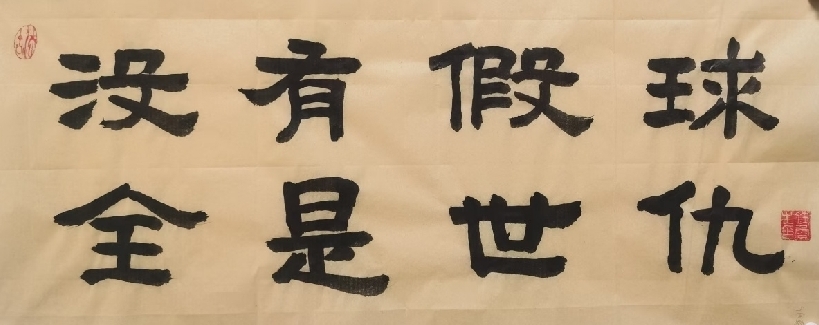 没有假球
全是世仇